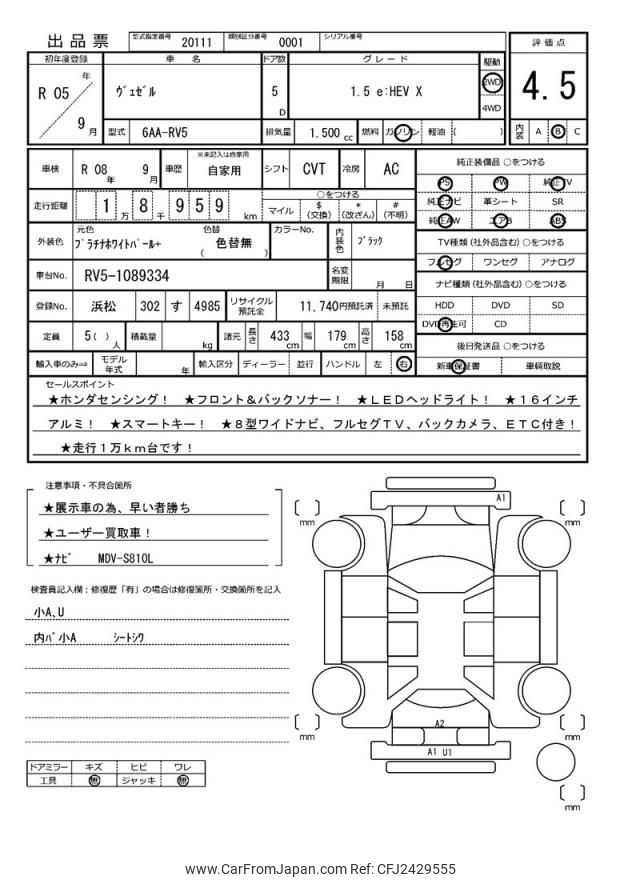 出品票 型式指定番号 20111 類別区分番号 0001 シリアル番号
評価点
4.5
内装 A B C
初年度登録 車名 ドア数 グレード 駆動
R 05 年 9 月 ヴェゼル 5 D 1.5 e:HEV X 2WD 4WD
型式 6AA-RV5 排気量 1.500 cc 燃料 ガソリン 軽油 ( )
車検 R 08 年 9 月 車歴 ※未記入は自家用 自家用 シフト CVT 冷房 AC
走行距離 1 万 8 千 9 5 9 km ○をつける
マイル $ (交換) * (改ざん) # (不明)
外装色 元色 プラチナホワイトパール+ 色替 ( 色替無 ) カラーNo. 内装色 ブラック
車台No. RV5-1089334 名変期限 月 日
登録No. 浜松 302 す 4985 リサイクル預託金 11,740円預託済 未預託
定員 5 ( ) 人 積載量 kg 諸元 長さ 433 cm 幅 179 cm 高さ 158 cm
輸入車のみ⇒ モデル年式 年 輸入区分 ディーラー 並行 ハンドル 左 右
純正装備品 ○をつける
PS PW 純正TV
純正ナビ 革シート SR
純正AW エアB ABS
TV種類 (社外品含む) ○をつける
フルセグ ワンセグ アナログ
ナビ種類 (社外品含む) ○をつける
HDD DVD SD
DVD再生可 CD
後日発送品 ○をつける
新車保証書 車輌取説
セールスポイント
★ホンダセンシング! ★フロント&バックソナー! ★LEDヘッドライト! ★16インチ
アルミ! ★スマートキー! ★8型ワイドナビ、フルセグTV、バックカメラ、ETC付き!
★走行1万km台です!
注意事項・不具合箇所
★展示車の為、早い者勝ち
★ユーザー買取車!
★ナビ MDV-S810L
検査員記入欄:修復歴「有」の場合は修復箇所・交換箇所を記入
小A、U
内バ小A シートシワ
ドアミラー キズ ヒビ ワレ
工具 無 ジャッキ 無
A1
mm mm
A2
A1 U1
mm mm
mm
www.CarFromJapan.com Ref: CFJ2429555